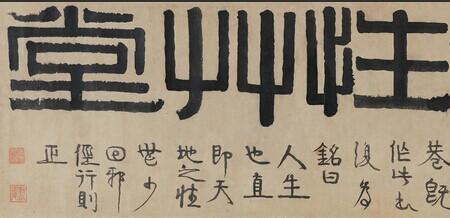 性艸堂
既
作此
復為
銘曰
人生
也直
即天
地之性
世少
回邪
徑行則
正